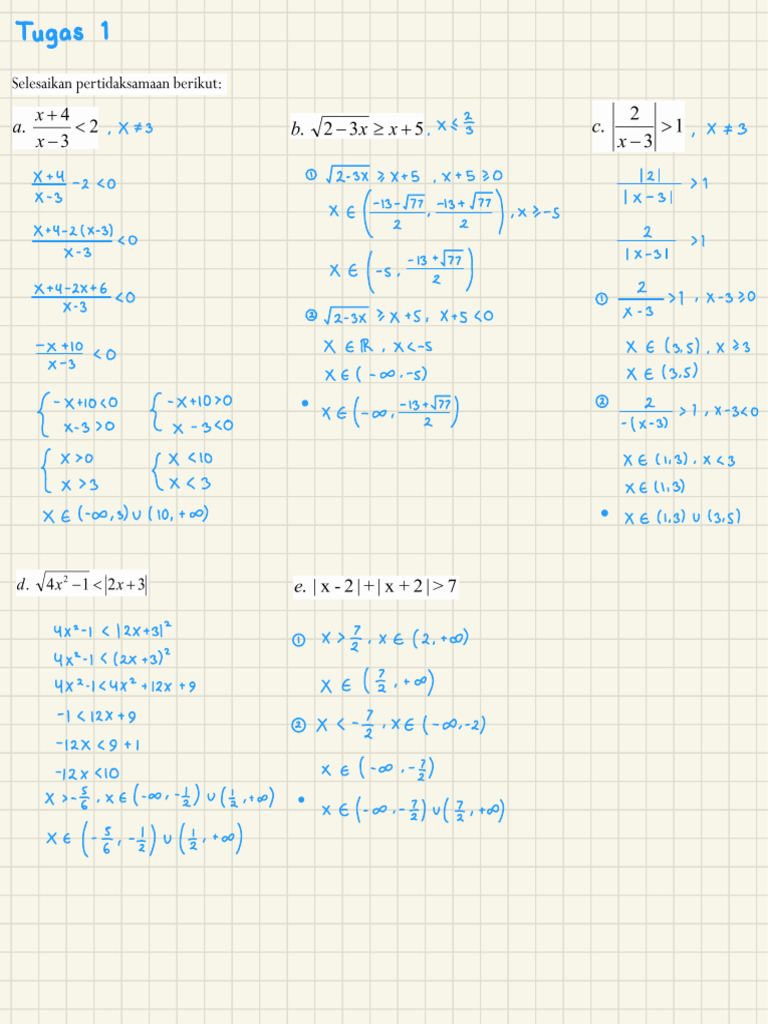 Tugas 1
Selesaikan pertidaksamaan berikut:
a. \frac{x+4}{x-3} < 2 , x ≠ 3
\frac{x+4}{x-3} - 2 < 0
\frac{x+4-2(x-3)}{x-3} < 0
\frac{x+4-2x+6}{x-3} < 0
\frac{-x+10}{x-3} < 0
{ -x+10<0 { -x+10>0
x-3>0 x-3<0
{ x>0 { x<10
x>3 x<3
x ∈ (-∞,3) ∪ (10,+∞)
b. √(2-3x) ≥ x+5 , x ≤ \frac{2}{3}
① √(2-3x) ≥ x+5 , x+5 ≥ 0
x ∈ (\frac{-13-√77}{2} , \frac{-13+√77}{2}) , x ≥ -5
x ∈ (-5 , \frac{-13+√77}{2})
② √(2-3x) ≥ x+5 , x+5 < 0
x ∈ ℝ , x<-5
x ∈ (-∞,-5)
• x ∈ (-∞ , \frac{-13+√77}{2})
c. |\frac{2}{x-3}| > 1 , x ≠ 3
\frac{|2|}{|x-3|} > 1
\frac{2}{|x-3|} > 1
① \frac{2}{x-3} > 1 , x-3 ≥ 0
x ∈ (3,5) , x ≥ 3
x ∈ (3,5)
② \frac{2}{-(x-3)} > 1 , x-3<0
x ∈ (1,3) , x < 3
x ∈ (1,3)
• x ∈ (1,3) ∪ (3,5)
d. √(4x²-1) < |2x+3|
4x²-1 < |2x+3|²
4x²-1 < (2x+3)²
4x²-1 < 4x²+12x+9
-1 < 12x+9
-12x < 9+1
-12x < 10
x > -\frac{5}{6} , x ∈ (-∞ , -\frac{1}{2}) ∪ (\frac{1}{2} , +∞)
x ∈ (-\frac{5}{6} , -\frac{1}{2}) ∪ (\frac{1}{2} , +∞)
e. |x-2|+|x+2|>7
① x > \frac{7}{2} , x ∈ (2,+∞)
x ∈ (\frac{7}{2} , +∞)
② x < -\frac{7}{2} , x ∈ (-∞,-2)
x ∈ (-∞ , -\frac{7}{2})
• x ∈ (-∞ , -\frac{7}{2}) ∪ (\frac{7}{2} , +∞)